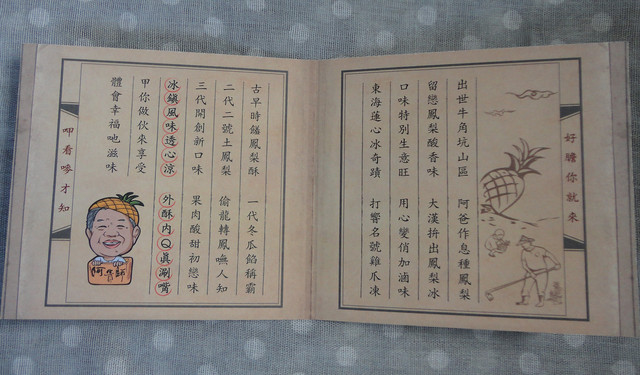 好膽你就來
出世牛角坑山區　阿爸作息種鳳梨
留戀鳳梨酸香味　大漢拚出鳳梨冰
口味特別生意旺　用心變俏加滷味
東海蓮心冰奇蹟　打響名號雞爪凍
古早時餡鳳梨酥　一代冬瓜餡稱霸
二代二號土鳳梨　偷龍轉鳳嘸人知
三代開創新口味　果肉酸甜初戀味
冰鎮風味透心涼　外酥內Q真涮嘴
甲你做伙來享受
體會幸福吔滋味
呷看嘜才知